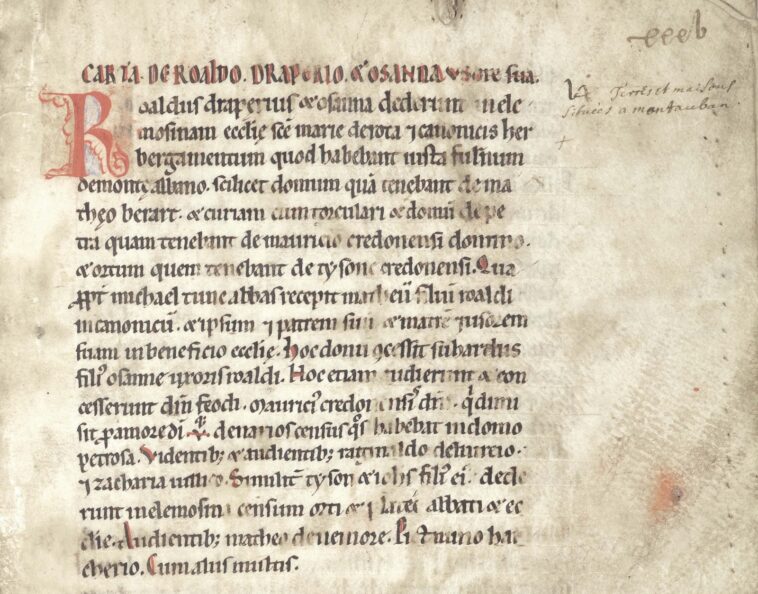 eeeb
CARTA. DE ROALDO. DRAPERIO. & OSANNA UXORE SUA.
Roaldus draperius & osanna dederunt in ele
mosinam ecclīę scē marie de rota ⁊ canonicis her
bergamentum quod habebant iuxta fulnium
de monte albano. scilicet domum quā tenebant de ma
theo berart. & curiam cum torculari & domū de pe
tra quam tenebant de mauricio credonensi domino.
& ortum quem tenebant de tysone credonensi. Qua
ꝓpt̄ michael tunc abbas recepit matheū filiū roaldi
in canonicū. & ipsum ⁊ patrem sui & matrē ⁊ uxorem
suam in beneficio ecclīę. Hoc donū ꝯcessit subardus
filiꝰ osanne uxoris roaldi. Hoc etiam audierunt & con
cesserunt dn̄i feodi. mauriciꝰ credonensiſ dn̄s. q̄ dimi
sit ꝓ amore di. V. denarios census qͦs habebat in domo
petrosa. Videntibꝫ & audientibꝫ raginaldo
⁊ zacharia. Similit̄ tyson & iohs filiꝰ eiꝰ. dede
runt in elemosina censum orti & abbati & ec
clīę. Audientibꝫ matheo de nemore. Ri
cherio. Cum aliis multis.
Terres et maisons
situées a montauban.